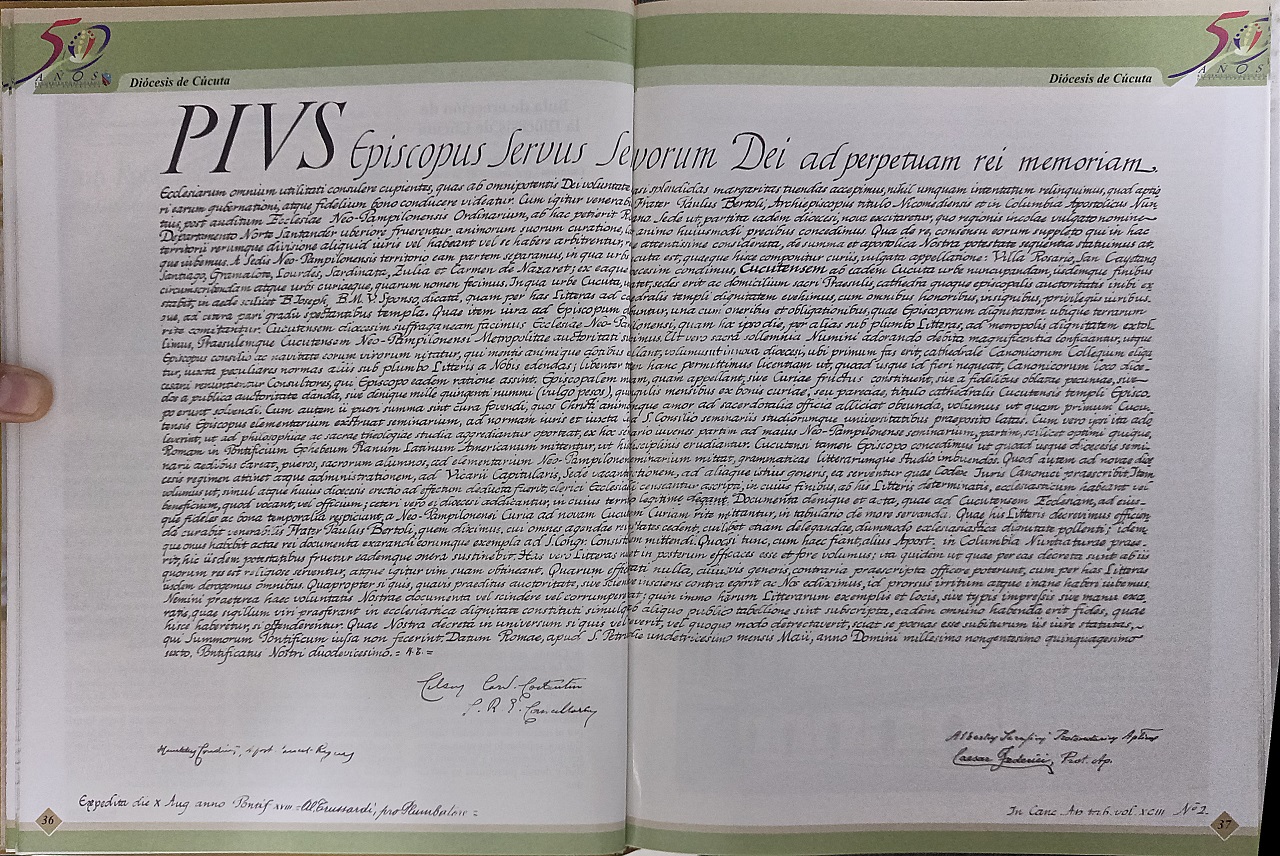 50
AÑOS
Diócesis de Cúcuta
50
AÑOS
Diócesis de Cúcuta
PIVS Episcopus Servus Servorum Dei ad perpetuam rei memoriam.
Ecclesiarum omnium utilitati consulere cupientes, quas ab omnipotentis Dei voluntate splendidas margaritas tuendas accepimus, nihil umquam intentatum relinquimus, quod aptio
ri earum gubernationi, atque fidelium bono conducere videatur. Cum igitur venerab Frater Paulus Bertoli, Archiepiscopus titulo Nicomediensis et in Columbia Apostolicus Nun
tius, post auditum Ecclesiae Neo-Pampilonensis Ordinarium, ab hac petierit Sede ut, partita eadem dioecesi, nova exstaretur, quo regionis incolae vulgato nomine
Departamento Norte Santander uberiore fruerentur animorum suorum curatione, animo huiusmodi precibus concedimus. Qua de re, consensu eorum suppleto qui in hac
territorii rerumque divisione aliquid iuris vel habeant vel se habere arbitrentur, attentissime considerata, de summa et apostolica Nostra potestate sequentia statuimus at
que iubemus. A Sedis Neo-Pampilonensis territorio eam partem separamus, in qua urbs est, quaeque hisce componitur curiis, vulgata appellatione: Villa Rosario, San Cayetano
Santiago, Gramalote, Lourdes, Sardinata, Zulia et Carmen de Nazaret; ex eaque condimus, Cucutensem ab eadem Cucuta urbe nuncupandam, iisdemque finibus
circumscribendam atque urbs curiaeque, quarum nomen fecimus. In qua urbe Cucuta, sedes erit ac domicilium sacri Praesulis, cathedra quoque episcopalis auctoritatis inibi ex
stabit, in aede scilicet B. Joseph, B. M. V. Sponso, dicata, quam per has Litteras ad templi dignitatem evehimus, cum omnibus honoribus, insignibus, privilegiis iuribus
que, ad cetera pari gradu spectantibus templa. Quae item iura ad Episcopum una cum oneribus et obligationibus, quae Episcoporum dignitatem ubique terrarum
rite comitantur. Cucutensem dioecesim suffraganeam facimus Ecclesiae Neo-Pampilonensi, quam hoc ipso die, per alias sub plumbo Litteras, ad metropolis dignitatem extol
limus, Praesulemque Cucutensem Neo-Pampilonensi Metropolitae auctoritati Ut vero sacra sollemnia Numini adorando debita magnificentia conficiantur, utque
Episcopus consilio ac navitate eorum virorum nitatur, qui mentis animique dotibus volumus ut in nova dioecesi, ubi primum fas erit, cathedrale Canonicorum Collegium eliga
tur, iuxta peculiares normas aliis sub plumbo Litteris a Nobis edendas; libenter hanc permittimus licentiam ut, quoad usque id fieri nequeat, Canonicorum loco dioe
cesani renuntientur Consultores, qui Episcopo eadem ratione assint. Episcopalem quam appellant, sive Curiae fructus constituent, sive a fidelibus oblatae pecuniae, sive
dos a publica auctoritate danda, sive denique mille quingenti nummi (vulgo pesos), mensibus ex bonis curiae, seu paroeciae, titulo cathedralis Cucutensis templi Episco
po erunt solvendi. Cum autem ii pueri summa sint cura fovendi, quos Christi amor ad sacerdotalia officia alliciat obeunda, volumus ut quam primum Cucu
tensis Episcopus elementarium exstruat seminarium, ad normam iuris et iuxta a S. Consilio seminariis studiorumque universitatibus praeposito latas. Cum vero ipsi ita ado
leverint, ut ad philosophiae ac sacrae theologiae studia aggrediantur oporteat, ex hoc partim ad maius Neo-Pampilonense seminarium, partim, scilicet optimi quique,
Romam in Pontificium Ephebeum Pianum Latinum Americanum mittentur, ut erudiantur. Cucutensi tamen Episcopo concedimus ut quoad usque dioecesis semi
narii aedibus careat, pueros, sacrorum alumnos, ad elementarium Neo-Pampilonense seminarium mittat, grammaticae litterarumque studio imbuendos. Quod autem ad novae dioe
cesis regimen attinet atque administrationem, ad Vicarii Capitularis, Sede vacante electionem, ad aliaque istius generis, ea serventur quae Codex Iuris Canonici praescribit. Item
volumus ut, simul atque huius dioecesis erectio ad effectum deducta fuerit, clerici Ecclesiae censeantur ascripti, in cuius finibus, ab his Litteris determinatis, ecclesiasticum habeant vel
beneficium, quod vocant, vel officium; ceteri vero ei dioecesi addicantur, in cuius territorio legitime degant. Documenta denique et acta, quae ad Cucutensem Ecclesiam, ad eius
que fideles ac bona temporalia respiciunt, a Neo-Pampilonensi Curia ad novam Cucutensem Curiam rite mittantur, in tabulario de more servanda. Quae his Litteris decrevimus efficien
da curabit venerabilis Frater Paulus Bertoli, quem diximus, cui omnes agendae cedent, cuilibet etiam delegandae, dummodo ecclesiastica dignitate pollenti; idem
que onus habebit actae rei documenta exarandi eorumque exempla ad S. Congr. Consistorialem mittendi. Quod si tunc, cum haec fiant, alius Apost. in Columbia Nuntiaturae prae
erit, hic iisdem potestatibus fruetur eademque onera sustinebit. Has vero Litteras nunc et in posterum efficaces esse et fore volumus; ita quidem ut quae per eas decreta sunt ab iis
quorum res est religiose serventur, atque igitur vim suam obtineant. Quarum efficacitati nulla, cuiusvis generis, contraria praescripta officere poterunt, cum per has Litteras
iisdem derogemus omnibus. Quapropter si quis, quavis praeditus auctoritate, sive sciens sive insciens contra egerit ac Nos ediximus, id prorsus irritum atque inane haberi iubemus.
Nemini praeterea haec voluntatis Nostrae documenta vel scindere vel corrumpere; quin immo harum Litterarum exemplis et locis, sive typis impressis sive manu exa
ratis, quae sigillum viri praeferant in ecclesiastica dignitate constituti simulque ab aliquo publico tabellione sint subscripta, eadem omnino habenda erit fides, quae
hisce haberetur, si ostenderentur. Quae Nostra decreta in universum si quis vel spreverit, vel quoquo modo detrectaverit, sciat se poenas esse subiturum iis iure statutas,
qui Summorum Pontificum iussa non fecerint. Datum Romae, apud S. Petrum, die undetricesimo mensis Maii, anno Domini millesimo nongentesimo quinquagesimo
sexto, Pontificatus Nostri duodevicesimo. = A.E. =
Celsus Card. Costantini
S. R. E. Cancellarius
Albertus Serafini Protonotarius Aplicus
Caesar Federici, Prot. Ap.
Expedita die X Aug anno Pontif. XVIII = Al Trussardi, pro Plumbatore =
In Canc. Ap. tab. vol. XCIII Nº 2.
36
37